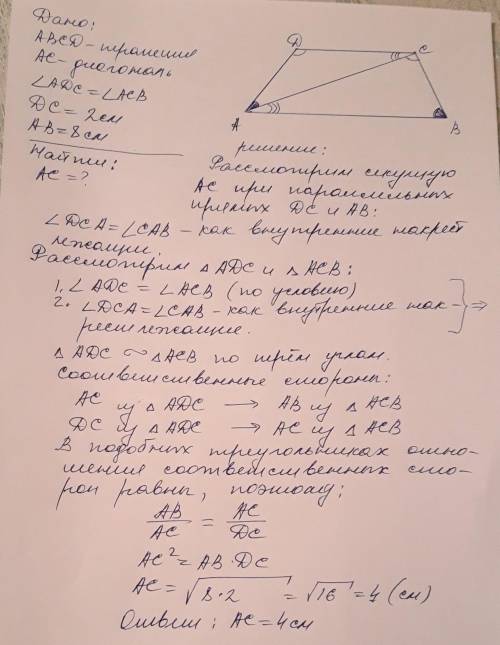 Дано:
ABCD - трапеция
AC - диагональ
∠ADC = ∠ACB
DC = 2см
AB = 8см
Найти:
AC = ?
D
C
A
B
решение:
Рассмотрим секущую
AC при параллельных
прямых DC и AB:
∠DCA = ∠CAB - как внутренние накрест
лежащии.
Рассмотрим △ADC и △ACB:
1. ∠ADC = ∠ACB (по условию)
2. ∠DCA = ∠CAB - как внутренние нак-
рест лежащие.
⇒
△ADC ~ △ACB по трём углам.
Соответственные стороны:
AC из △ADC → AB из △ACB
DC из △ADC → AC из △ACB
В подобных треугольниках отно-
шения соответственных сто-
рон равны, поэтому:
AB/AC = AC/DC
AC² = AB · DC
AC = √8·2 = √16 = 4 (см)
Ответ: AC = 4см